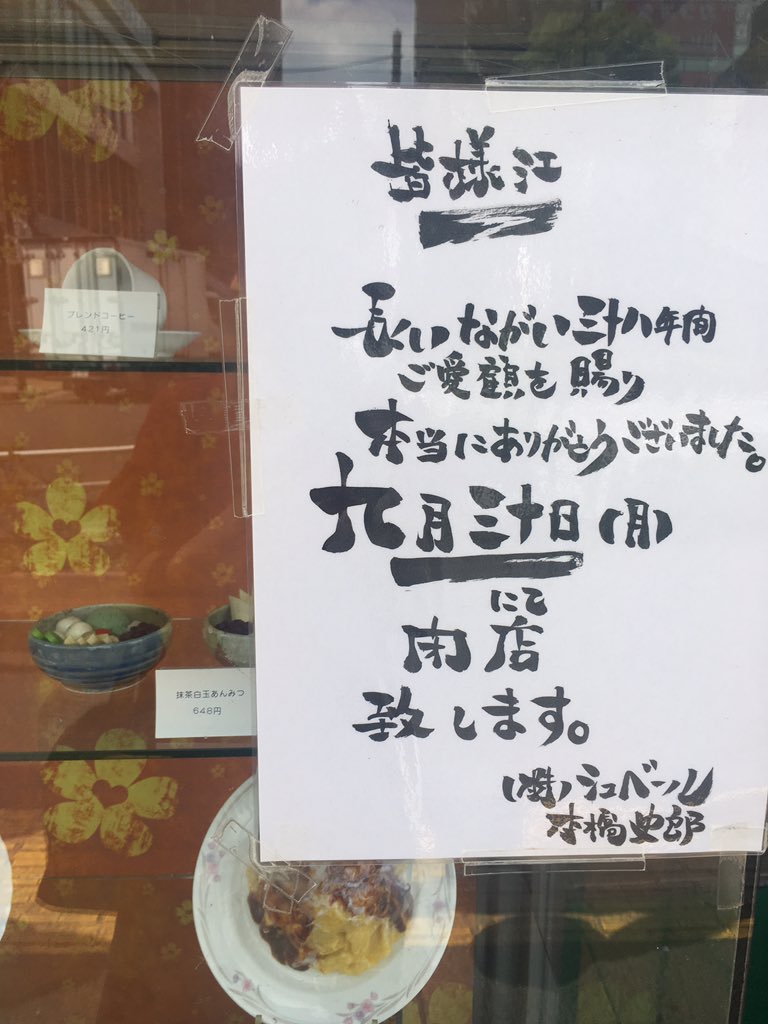 皆様江
長い ながい 三十八年間
ご愛顧を 賜り
本当にありがとうございました。
九月三十日(月)
にて
閉店
致します。
(株)シュベール
本橋典郎
ブレンドコーヒー
421円
抹茶白玉あんみつ
648円